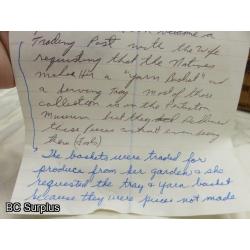 became a
Trading Post with the Wife
requiding that the Natives
make Her a "yarn Basket" and
a serving tray most of those
collection is in the
Museum but they did
these pieces without even being
there (Josh)
"The baskets were traded for
produce from her garden & she
requested the tray & yarn basket
because they were pieces not made
BC Surplus